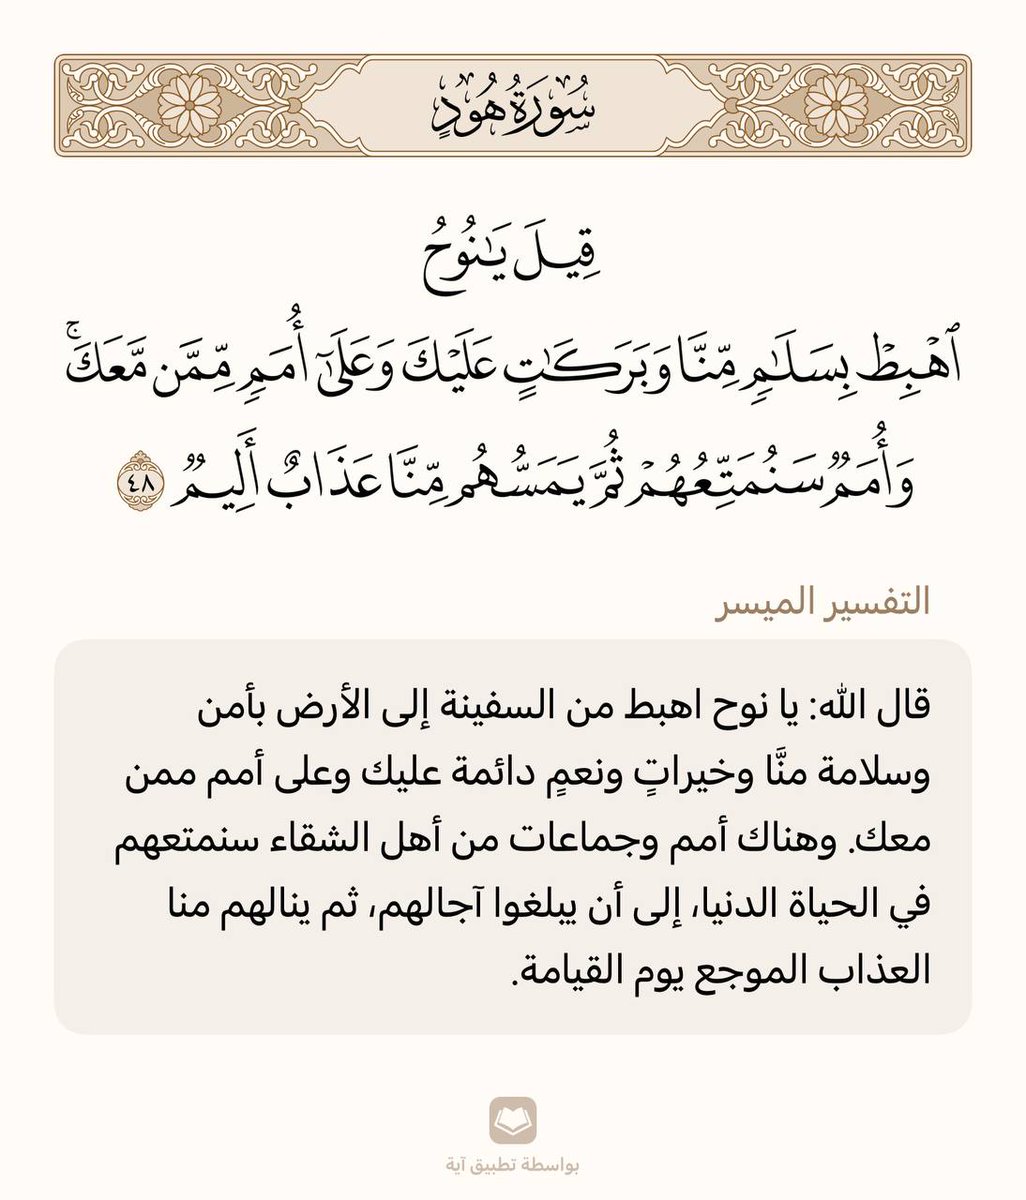 سُورَةُ هُودٍ
قِيلَ يَٰنُوحُ
ٱهۡبِطۡ بِسَلَٰمٖ مِّنَّا وَبَرَكَٰتٍ عَلَيۡكَ وَعَلَىٰٓ أُمَمٖ مِّمَّن مَّعَكَۚ
وَأُمَمٞ سَنُمَتِّعُهُمۡ ثُمَّ يَمَسُّهُم مِّنَّا عَذَابٌ أَلِيمٞ ٤٨
التفسير الميسر
قال الله: يا نوح اهبط من السفينة إلى الأرض بأمن
وسلامة منَّا وخيراتٍ ونعمٍ دائمة عليك وعلى أمم ممن
معك. وهناك أمم وجماعات من أهل الشقاء سنمتعهم
في الحياة الدنيا، إلى أن يبلغوا آجالهم، ثم ينالهم منا
العذاب الموجع يوم القيامة.
بواسطة تطبيق آية